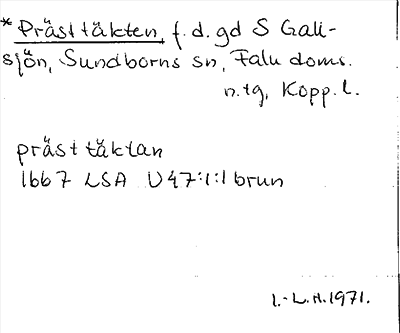 *Prästtäkten, f.d. gd S Gali-
sjön, Sundborns sn, Falu doms.
n. tg, Kopp. l.
prästtäktan
1667 LSA U 47:1:1 brun
I.-L.H. 1971.